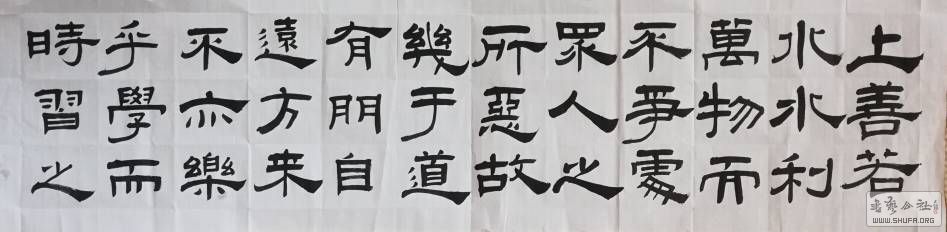 上善若
水水利
萬物而
不爭處
眾人之
所惡故
幾于道
有朋自
遠方来
不亦樂
乎學而
時習之
WWW.SHUFA.ORG